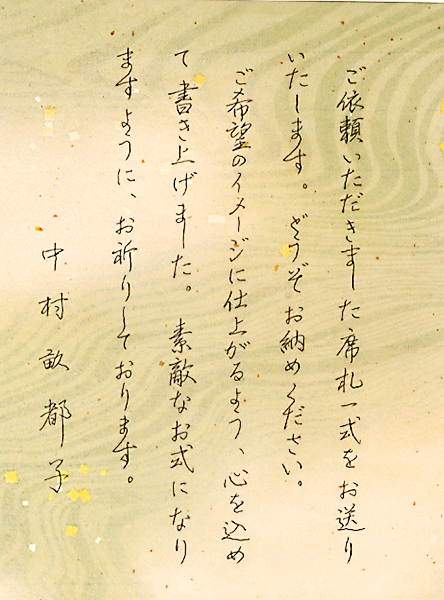 ご依頼いただきました席札一式をお送り
いたします。どうぞお納めください。
ご希望のイメージに仕上がるよう、心を込め
て書き上げました。素敵なお式になり
ますように、お祈りしております。
中村畝都子